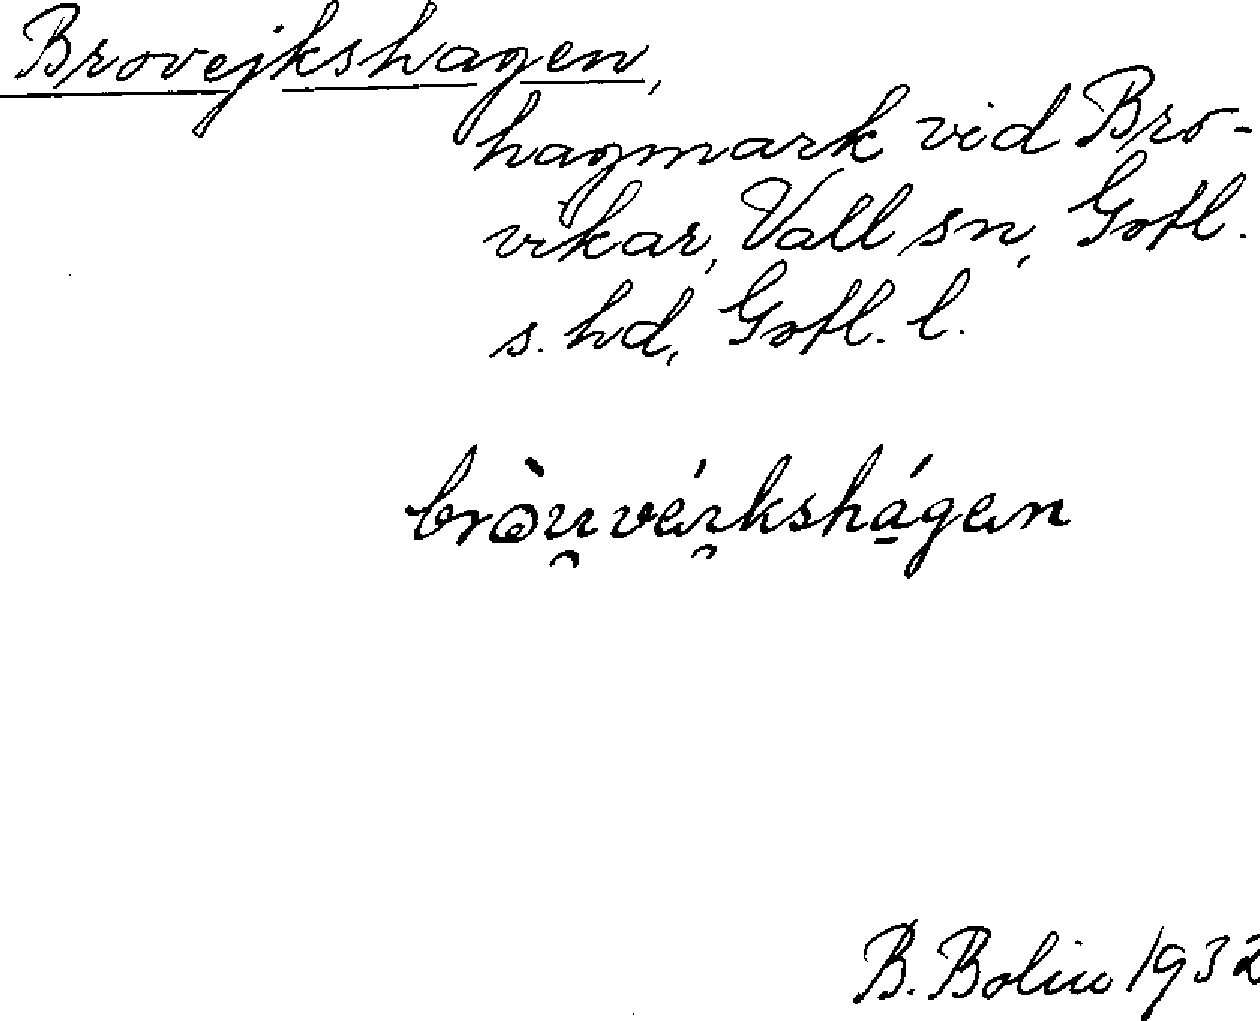 Brovejkshagen,
hagmark vid Bro-
vikar, Vall sn, Gotl.
s. hd, Gotl. l.
B. Bolin 1932